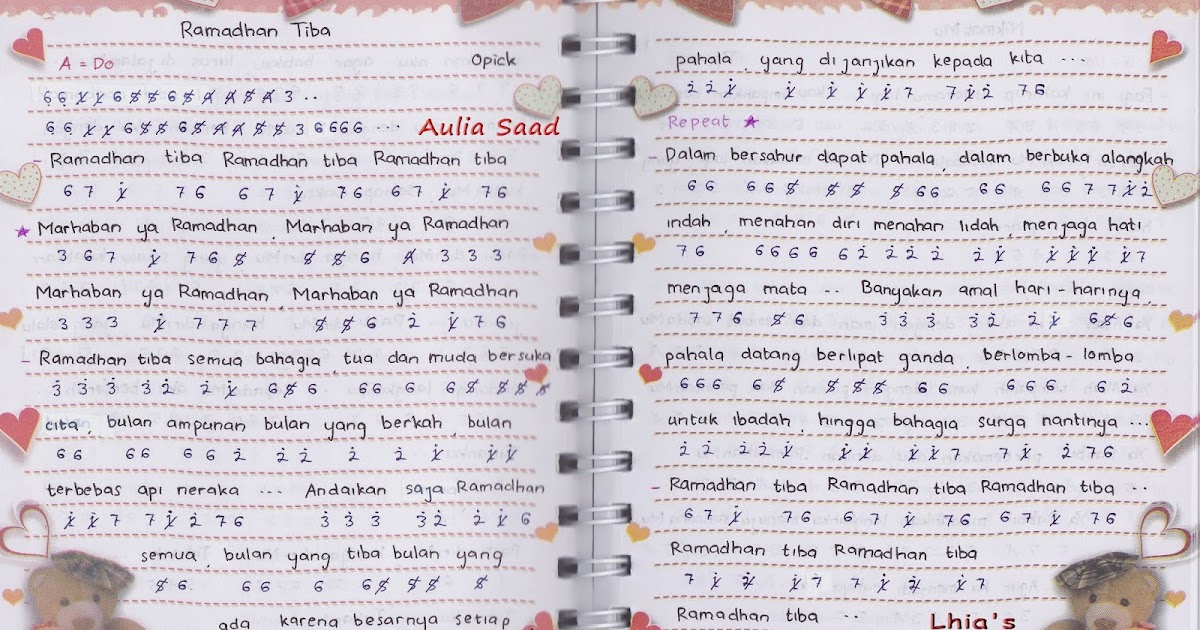 Ramadhan Tiba
A = Do Opick
6 6 1̸̇ 1̸̇ 6 5̸ 5̸ 6 5̸ 4̸ 4̸ 5̸ 4̸ 3 ..
6 6 1̸̇ 1̸̇ 6 5̸ 5̸ 6 5̸ 4̸ 4̸ 5̸ 5̸ 3 6 6 6 6 ...
Aulia Saad
- Ramadhan tiba Ramadhan tiba Ramadhan tiba
6 7 1̸̇ 7 6 6 7 1̸̇ 7 6 6 7 1̸̇ 7 6
★ Marhaban ya Ramadhan, Marhaban ya Ramadhan
3 6 7 1̸̇ 7 6 5̸ 5̸ 5̸ 6 4̸ 3 3 3
Marhaban ya Ramadhan, Marhaban ya Ramadhan
3 3 3 1̸̇ 7 7 7 5̸ 5̸ 6 2̇ 1̸̇ 7 6
- Ramadhan tiba semua bahagia, tua dan muda bersuka
3̇ 3̇ 3̇ 3̇ 2̇ 2̇ 1̸̇ 6 5̸ 6 6 6 6 6 5̸ 5̸ 5̸ 5̸
cita, bulan ampunan bulan yang berkah, bulan
6 6 6 6 6 6 2̇ 2̇ 2̇ 2̇ 2̇ 1̸̇ 1̸̇ 1̸̇
terbebas api neraka ... Andaikan saja Ramadhan
1̸̇ 1̸̇ 7 7 1̸̇ 2̇ 7 6 3̇ 3̇ 3̇ 3̇ 2̇ 2̇ 1̸̇ 6
semua, bulan yang tiba bulan yang
5̸ 6 6 6 6 6 5̸ 5̸ 5̸ 5̸
ada karena besarnya setiap
pahala, yang dijanjikan kepada kita ...
2̇ 2̇ 1̸̇ 1̸̇ 1̸̇ 1̸̇ 1̸̇ 7 7 1̸̇ 2̇ 7 6
Repeat ★
- Dalam bersahur dapat pahala, dalam berbuka alangkah
6 6 6 6 5̸ 5̸ 5̸ 5̸ 6 6 6 6 6 6 7 7 1̸̇ 2̇
indah, menahan diri menahan lidah, menjaga hati
7 6 6 6 6 6 6 2̇ 2̇ 2̇ 2̇ 2̇ 1̸̇ 1̸̇ 1̸̇ 1̸̇ 1̸̇ 7
menjaga mata .. Banyakan amal hari-harinya,
7 7 6 5̸ 6 3̇ 3̇ 3̇ 3̇ 2̇ 2̇ 1̸̇ 6 5̸ 6
pahala datang berlipat ganda, berlomba-lomba
6 6 6 6 5̸ 5̸ 5̸ 5̸ 6 6 6 6 6 6 2̇
untuk ibadah, hingga bahagia surga nantinya ...
2̇ 2̇ 2̇ 2̇ 1̸̇ 1̸̇ 1̸̇ 1̸̇ 1̸̇ 7 7 1̸̇ 2̇ 7 6
- Ramadhan tiba Ramadhan tiba Ramadhan tiba ..
6 7 1̸̇ 7 6 6 7 1̸̇ 7 6 6 7 1̸̇ 7 6
Ramadhan tiba Ramadhan tiba
7 1̸̇ 2̸̇ 1̸̇ 7 7 1̸̇ 2̸̇ 1̸̇ 7
Ramadhan tiba ..
Lhia's